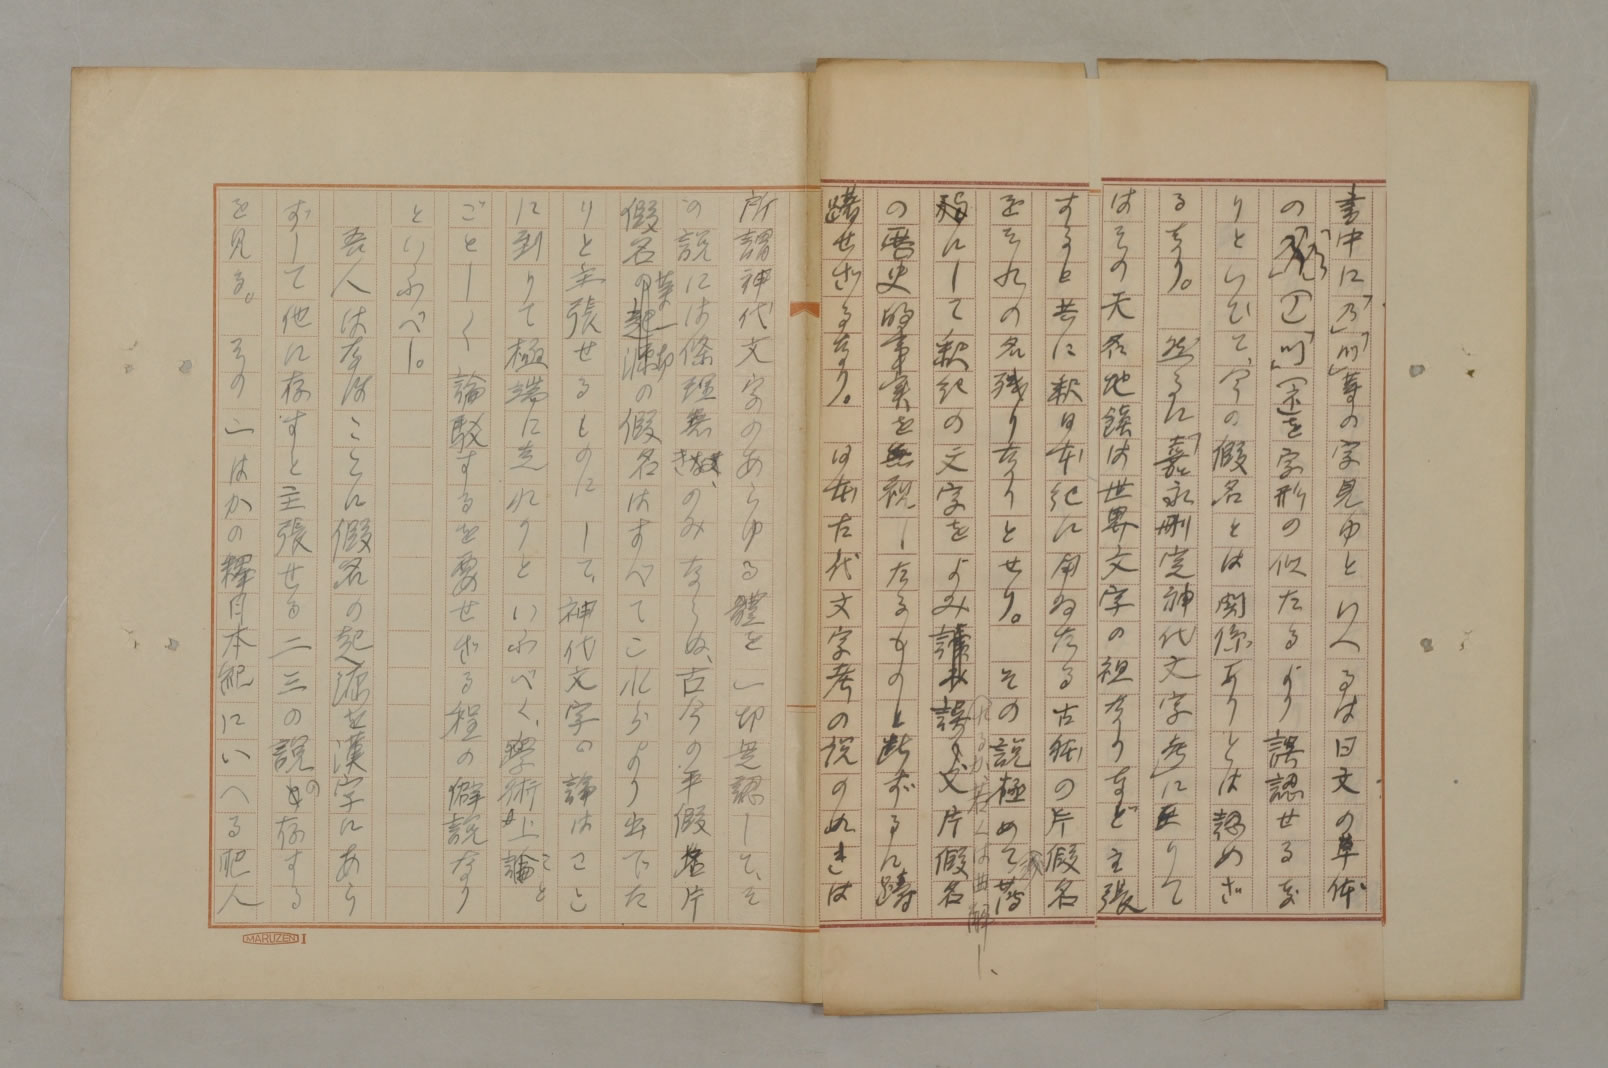 書中に「乃」「川」等の字見ゆといへるは日文の草体
の「」「」を字形の似たるより誤認せるな
りといひて、今の假名とは関係ありとは認めざ
るなり。然るに「嘉永刪定神代文字考」に至りて
はその天名地鎮は世界文字の祖なりなど主張
すると共に釈日本紀に用ゐたる古体の片假名
をそれの名残りなりとせり。その説極めて
にして釈紀の文字をよみ誤り片假名
れるか若くは曲解し、
の歴史的事実を無視したるものと断ずるに躊
躇せざるなり。日本古代文字考の説の如きは
所謂神代文字のあらゆる體を一切是認して、そ
の説には條理無きのみならぬ、古今の平假名片
假名の草一切の假名はすべてこれらより出でた
りと主張せるものにして、神代文字の論はここ
に到りて極端に走れりといふべく、學術上論ことご
とーく論駁するを要せざる程の僻説なり
といふべし。
吾人はなほここに假名の起源を漢字にあら
ずして他に存すと主張せる二三の説の存する
を見る。その一はかの釋日本紀にいへる肥人
MARUZEN I